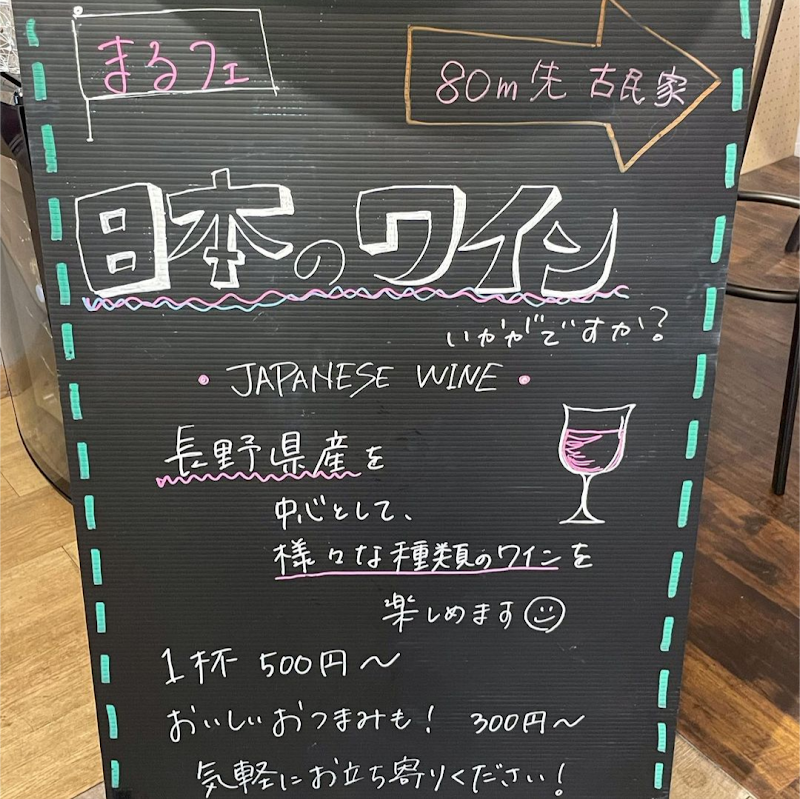 まるフェ
80m先 古民家
日本のワイン
いかがですか?
・JAPANESE WINE・
長野県産を
中心として、
様々な種類のワインを
楽しめます
1杯 500円〜
おいしいおつまみも! 300円〜
気軽にお立ち寄りください!